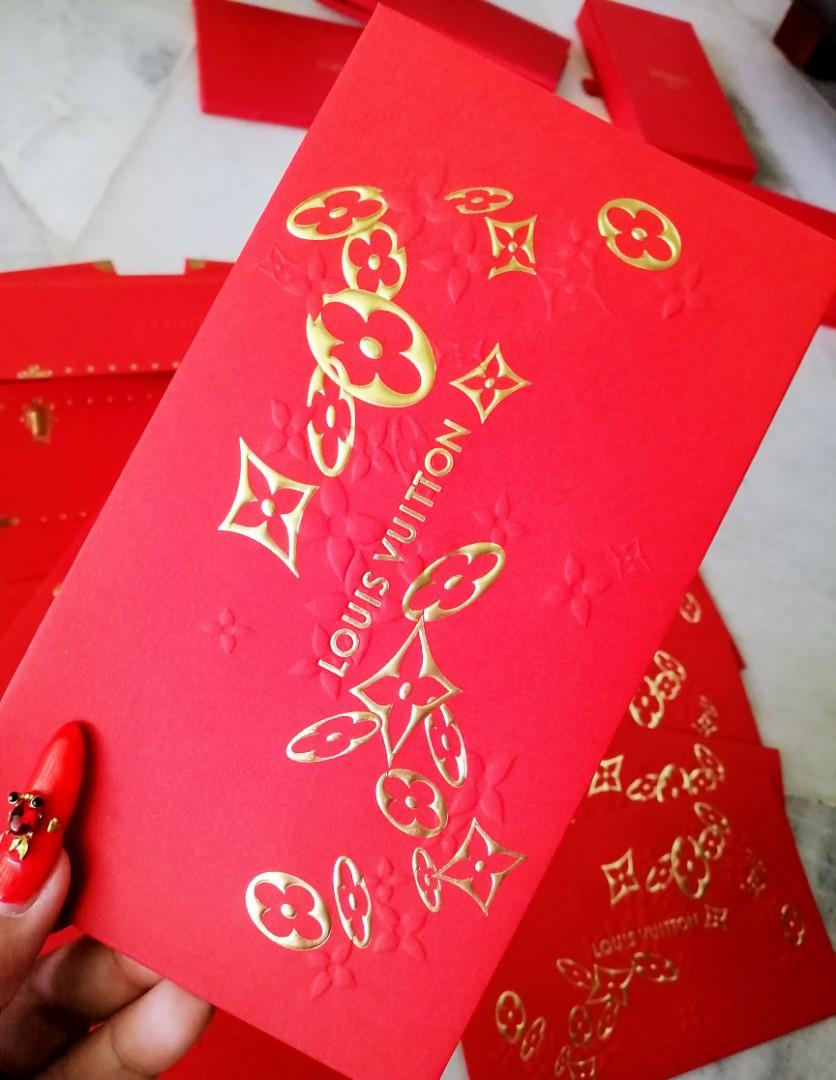 LOUIS VUITTON
LOUIS VUITTON